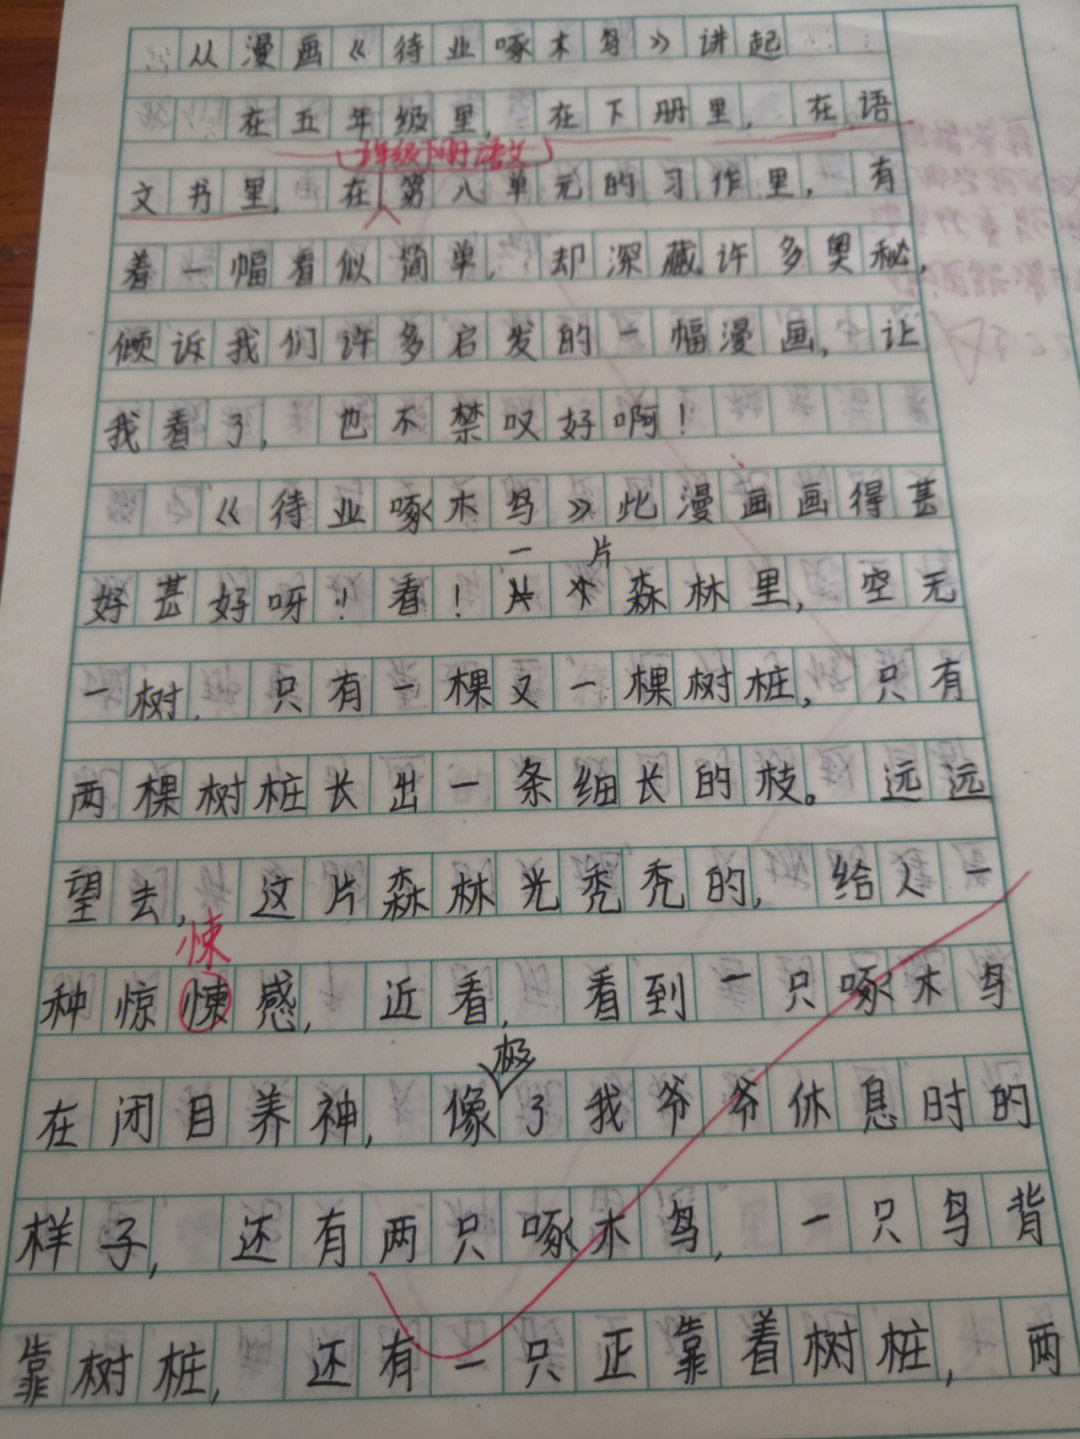 从漫画《待业啄木鸟》讲起
在五年级里,在下册里,在语
五年级下册语文
文书里,在第八单元的习作里,有
着一幅看似简单,却深藏许多奥秘,
倾诉我们许多启发的一幅漫画,让
我看了,也不禁叹好啊!
《待业啄木鸟》此漫画画得甚
一片
好甚好呀!看!森林里,空无
一树,只有一棵又一棵树桩,只有
两棵树桩长出一条细长的枝。远远
望去,这片森林光秃秃的,给人一
悚
种惊悚感,近看,看到一只啄木鸟
极
在闭目养神,像了我爷爷休息时的
样子,还有两只啄木鸟,一只鸟背
靠树桩,还有一只正靠着树桩,两